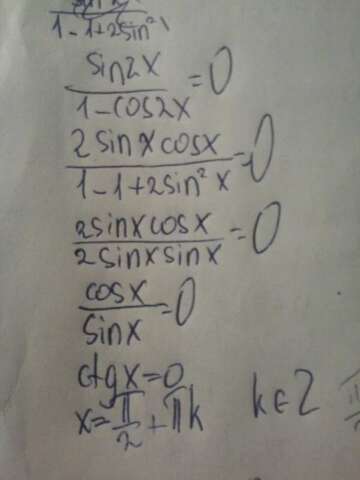 1-1+2sin²
sin2x / 1-cos2x =0
2sinxcosx / 1-1+2sin²x =0
2sinxcosx / 2sinxsinx =0
cosx / sinx =0
ctgx=0
x=π/2+πk k∈Z